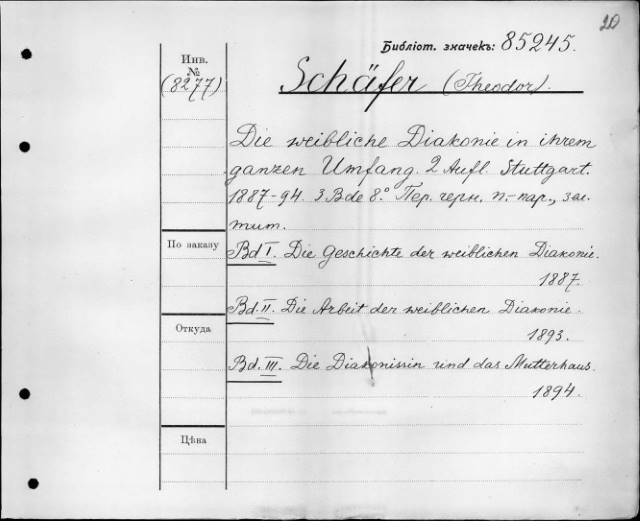 20
Библіот. значекъ: 85245.
Инв.
№
(8277)
Schäfer (Theodor).
Die weibliche Diakonie in ihrem
ganzen Umfang. 2 Aufl. Stuttgart.
1887-94. 3 Bde 8.° Пер. черн. п.-пар., заг.
тит.
По заказу
Bd I. Die Geschichte der weiblichen Diakonie.
1887.
Bd. II. Die Arbeit der weiblichen Diakonie.
Откуда
1893.
Bd. III. Die Diakonissin und das Mutterhaus.
1894.
Цѣна